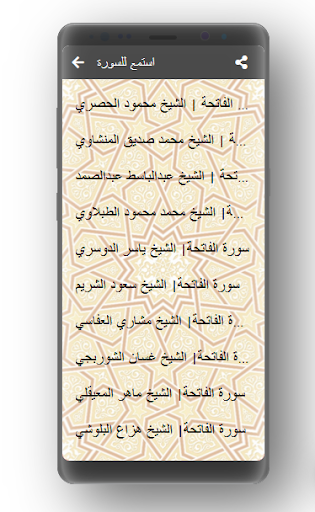 استمع للسورة
... الفاتحة | الشيخ محمود الحصري
ة | الشيخ محمد صديق المنشاوي...
تحة | الشيخ عبدالباسط عبدالصمد...
ة| الشيخ محمد محمود الطبلاوي...
سورة الفاتحة| الشيخ ياسر الدوسري
سورة الفاتحة| الشيخ سعود الشريم
رة الفاتحة| الشيخ مشاري العفاسي...
ة الفاتحة| الشيخ غسان الشوربجي...
سورة الفاتحة| الشيخ ماهر المعيقلي
سورة الفاتحة| الشيخ هزاع البلوشي